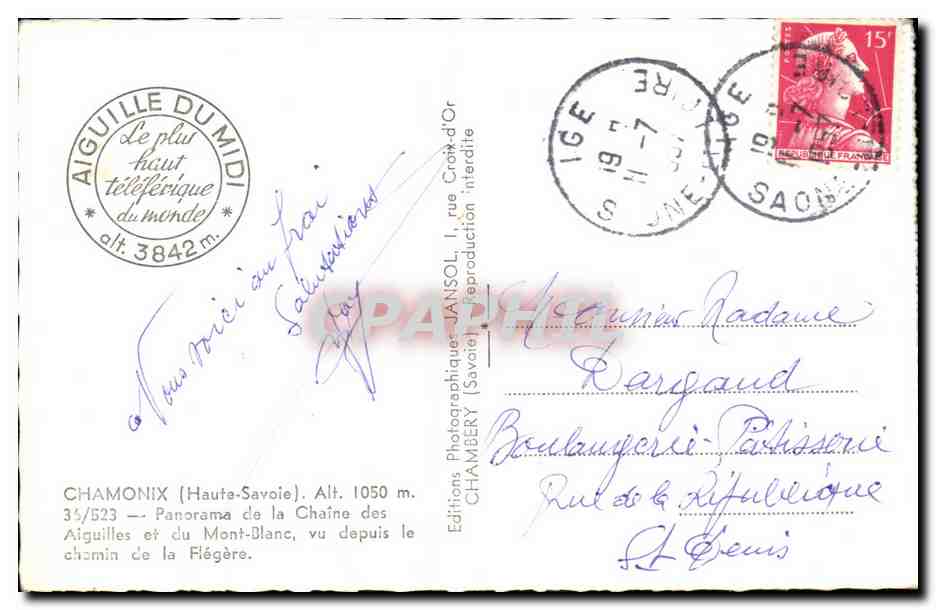 AIGUILLE DU MIDI
Le plus
haut
téléférique
du monde
* alt. 3842 m. *
Nous voici au frai
Salutations
CHAMONIX (Haute-Savoie). Alt. 1050 m.
35/523 — Panorama de la Chaîne des
Aiguilles et du Mont-Blanc, vu depuis le
chemin de la Flégère.
Editions Photographiques JANSOL, 1, rue Croix-d'Or
CHAMBERY (Savoie) * Reproduction interdite
CPAPHIL
IGE
19 -7
IGE
19 -7
SAONE
POSTES
15F
REPUBLIQUE FRANCAISE
Monsieur Madame
Dargaud
Boulangerie-Pâtisserie
Rue de la République
St Denis